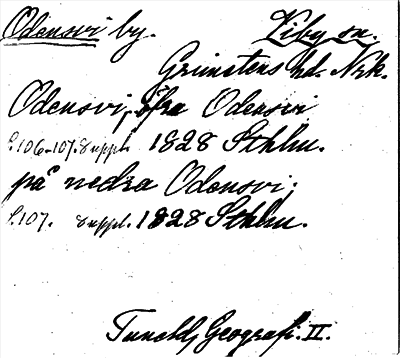 Odensvi by. Viby sn.
Grimstens hd. Nrk.
Odensvi, öfra Odensvi
s. 106-107. Suppl. 1828 Sthlm.
på nedra Odensvi;
s. 107. Suppl. 1828 Sthlm.
Tunelds Geografi. II.